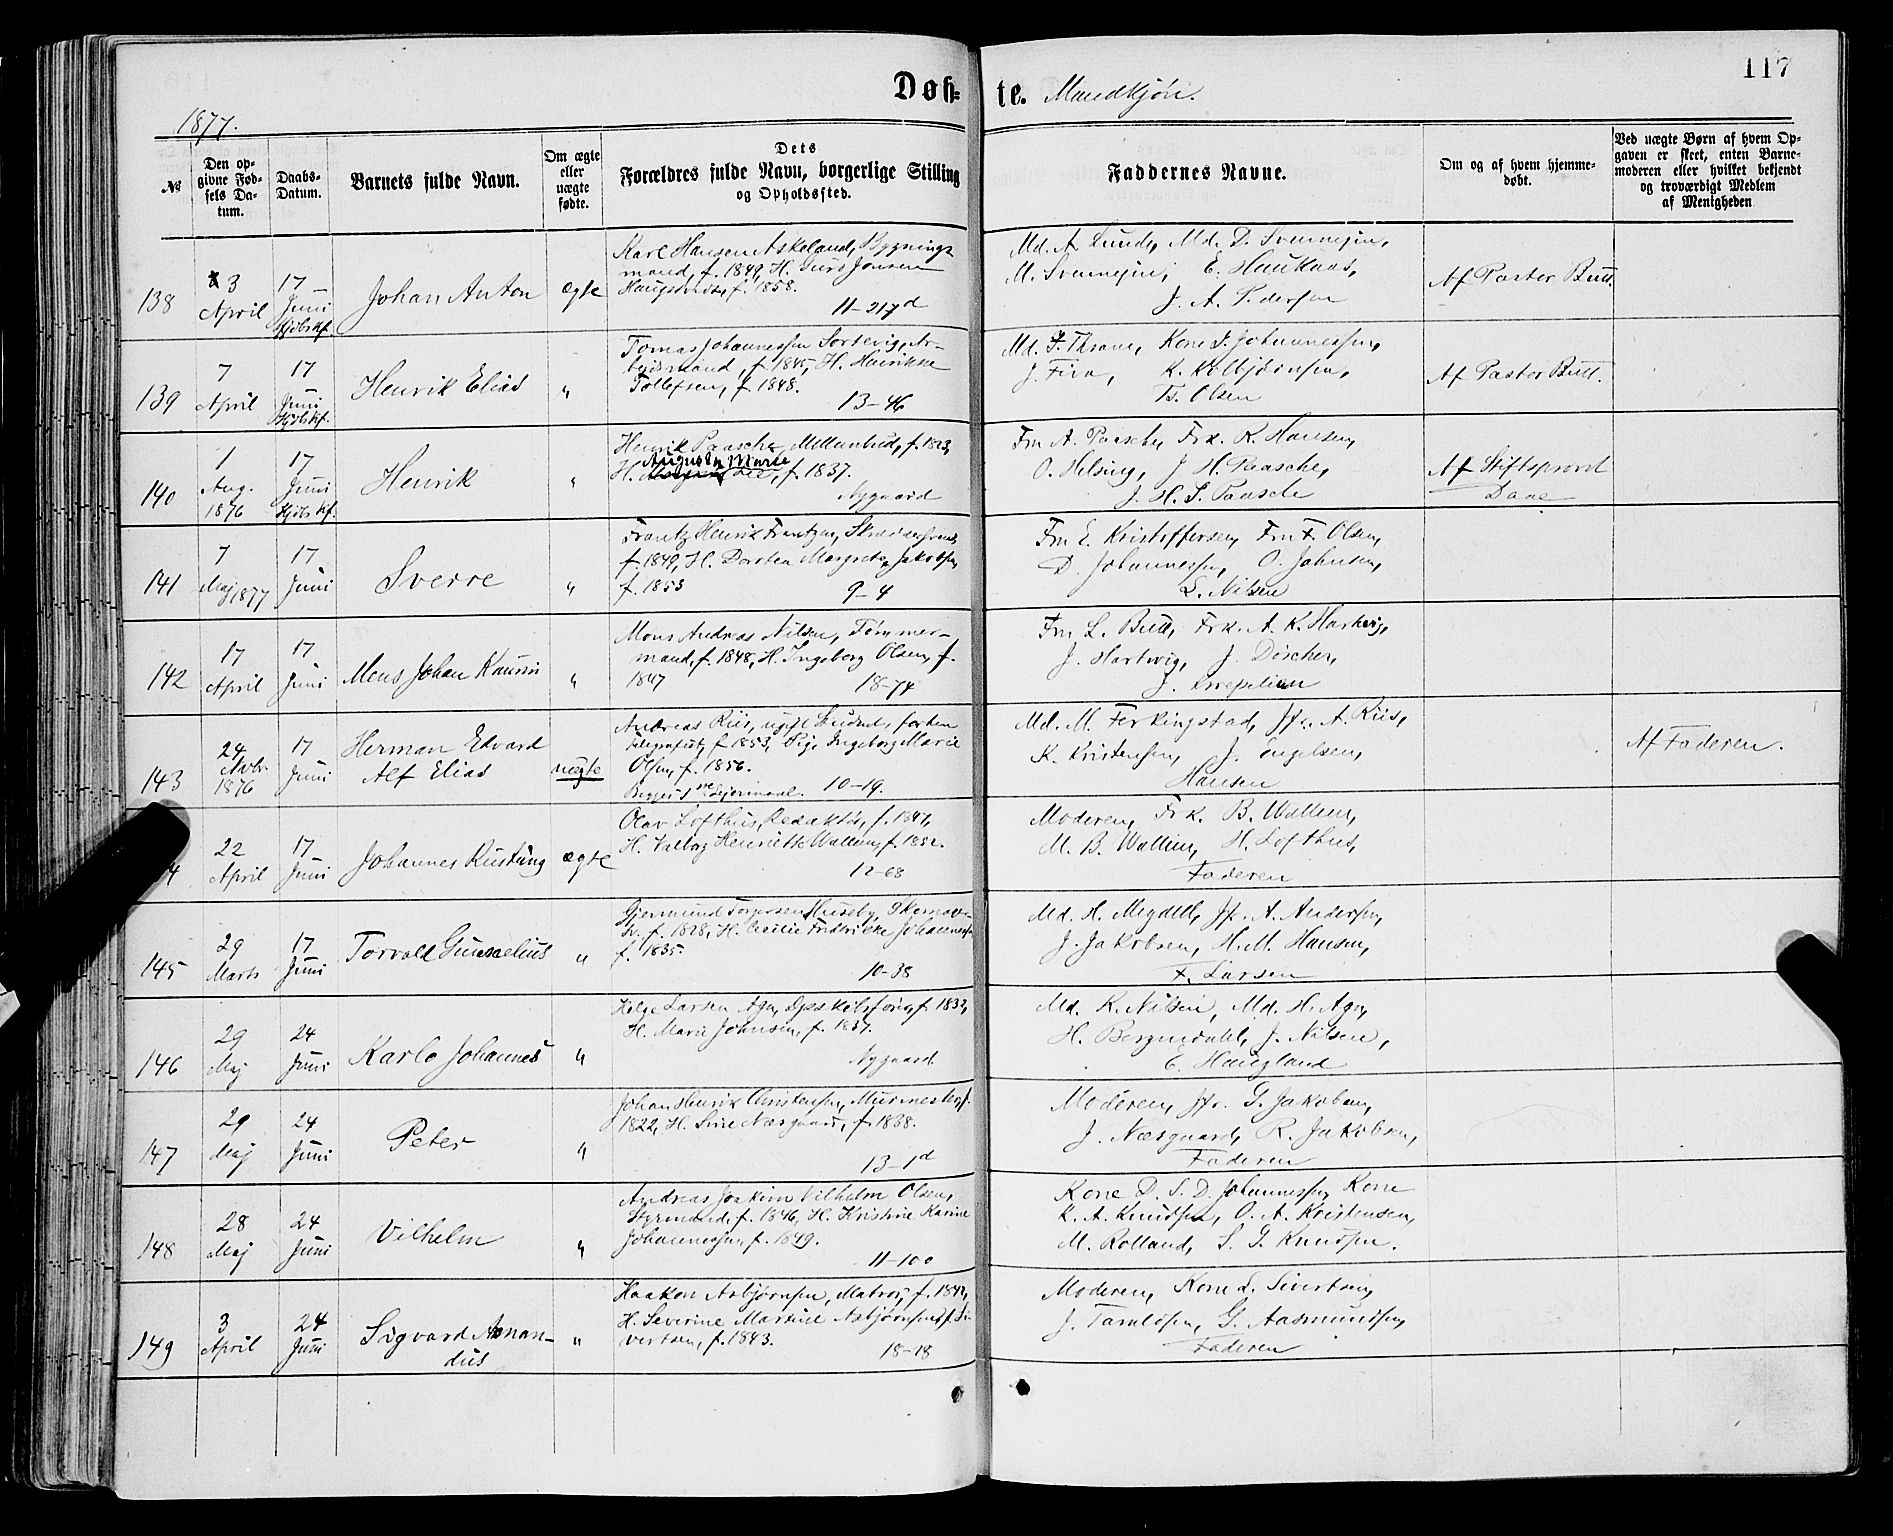 117
Døb-te. Mandkjøn.
1877.
№
Den opgivne Fødsels Datum.
Daabs-Datum.
Barnets fulde Navn.
Om ægte eller uægte fødte.
Dets Forældres fulde Navn, borgerlige Stilling og Opholdssted.
Faddernes Navne.
Om og af hvem hjemmedøbt.
Ved uægte Børn af hvem Opgaven er skeet, enten Barnemoderen eller hvilket bekjendt og troværdigt Medlem af Menigheden
138
3 April
17 Juni
Johan Anton
ægte
Karl Hansen Askeland, Bygnings
mand, f. 1849, H. Guro Jonsen
f. 1858.
11-217d
Md. A. Lund, Md. D. Svennesen,
M. Svennesen, E. Haukaas,
J. A. Pedersen
Af Pastor Bull.
139
7 April
17 Juni
Henrik Elias
"
Tomas Johannessen Sortevig, Ar-
beidsmand, f. 1845, H. Henrikke
Tollefsen, f. 1848.
13-46
Md. Thrane, Kone I. Johannessen,
K. Kolbjørnsen,
B. Olsen
Af Pastor Bull.
140
1 Aug. 1876
17 Juni
Henrik
"
Henrik Paasche, f. 1823,
Augusta Marie
H. f. 1837.
Nygaard
Fru A. Paasche, Frk. K. Hansen,
O. Helsing, J. H. Paasche,
J. H. S. Paasche
Af Stiftsprovst
Daae
141
7 Maj 1877
17 Juni
Sverre
"
Frantz Henrik Frantzen, Skrædersvend,
f. 1849, H. Dorthea Margrete Jakobsen,
f. 1853
9-4
Fru E. Kristoffersen, Fru F. Olsen,
D. Johannessen, O. Johnsen,
L. Nilsen
142
17 April
17 Juni
Mons Johan
"
Mons Andreas Nilsen, Tømmer-
mand, f. 1848, H. Ingeborg Olsen, f.
1847
18-74
Fru L. Bull, Frk. A. K. Hartvig,
J. Hartvig, J. Döscher,
143
24 Novbr. 1876
17 Juni
Herman Edvard
Alf Elias
uægte
Andreas Riis, ugift Student, forhen
Telegrafist, f. 1853, Pige Ingeborg Marie
Olsen, f. 1856.
Begges Leiermaal. 10-19.
Md. M. Ferkingstad, Jfr. A. Riis,
K. Kristensen, J. Engelsen,
Hansen
Af Faderen.
22 April
17 Juni
Johannes Rustung
ægte
Olav Lofthus, Redaktør, f. 1841,
H. Valborg Henriette Wallem, f. 1852.
12-68
Moderen, Frk. B. Wallem,
M. B. Wallem, H. Lofthus,
Faderen
145
29 Marts
17 Juni
Torvald
"
Gjermund Torgersen Huseby, Skomager
f. 1828, H. Cecilie Fredrikke Johannessen
f. 1835.
10-38
Md. H. Megdell, Jfr. A. Andersen,
J. Jakobsen, H. M. Hansen,
F. Larsen
146
29 Maj
24 Juni
Karlo Johannes
"
Helge Larsen Aga, f. 1832,
H. Marie Johnsen, f. 1837.
Nygaard
Md. K. Nilsen, Md. H. Aga,
H. Bergendahl, J. Nilsen,
E. Haugland
147
29 Maj
24 Juni
Peter
"
Johan Henrik Christensen, Murmester, f.
1822, H. Sine Næsgaard, f. 1838.
13-1d
Moderen, Jfr. G. Jakobsen,
J. Næsgaard, R. Jakobsen,
Faderen
148
28 Maj
24 Juni
Vilhelm
"
Andreas Joakim Vilhelm Olsen,
Styrmand, f. 1846, H. Kristine Karine
Johannessen, f. 1849.
11-100
Kone D. S. D. Johannessen, Kone
K. A. Knudsen, O. A. Kristensen,
M. Rolland, S. G. Knudsen.
149
3 April
24 Juni
Sigvard Aman-
dus
"
Haakon Asbjørnsen, Matros, f. 1842,
H. Severine Martine Asbjørnsen f. Si-
vertsen, f. 1843.
18-18
Moderen, Kone L. Sivertsen,
G. Aasmundsen,
Faderen